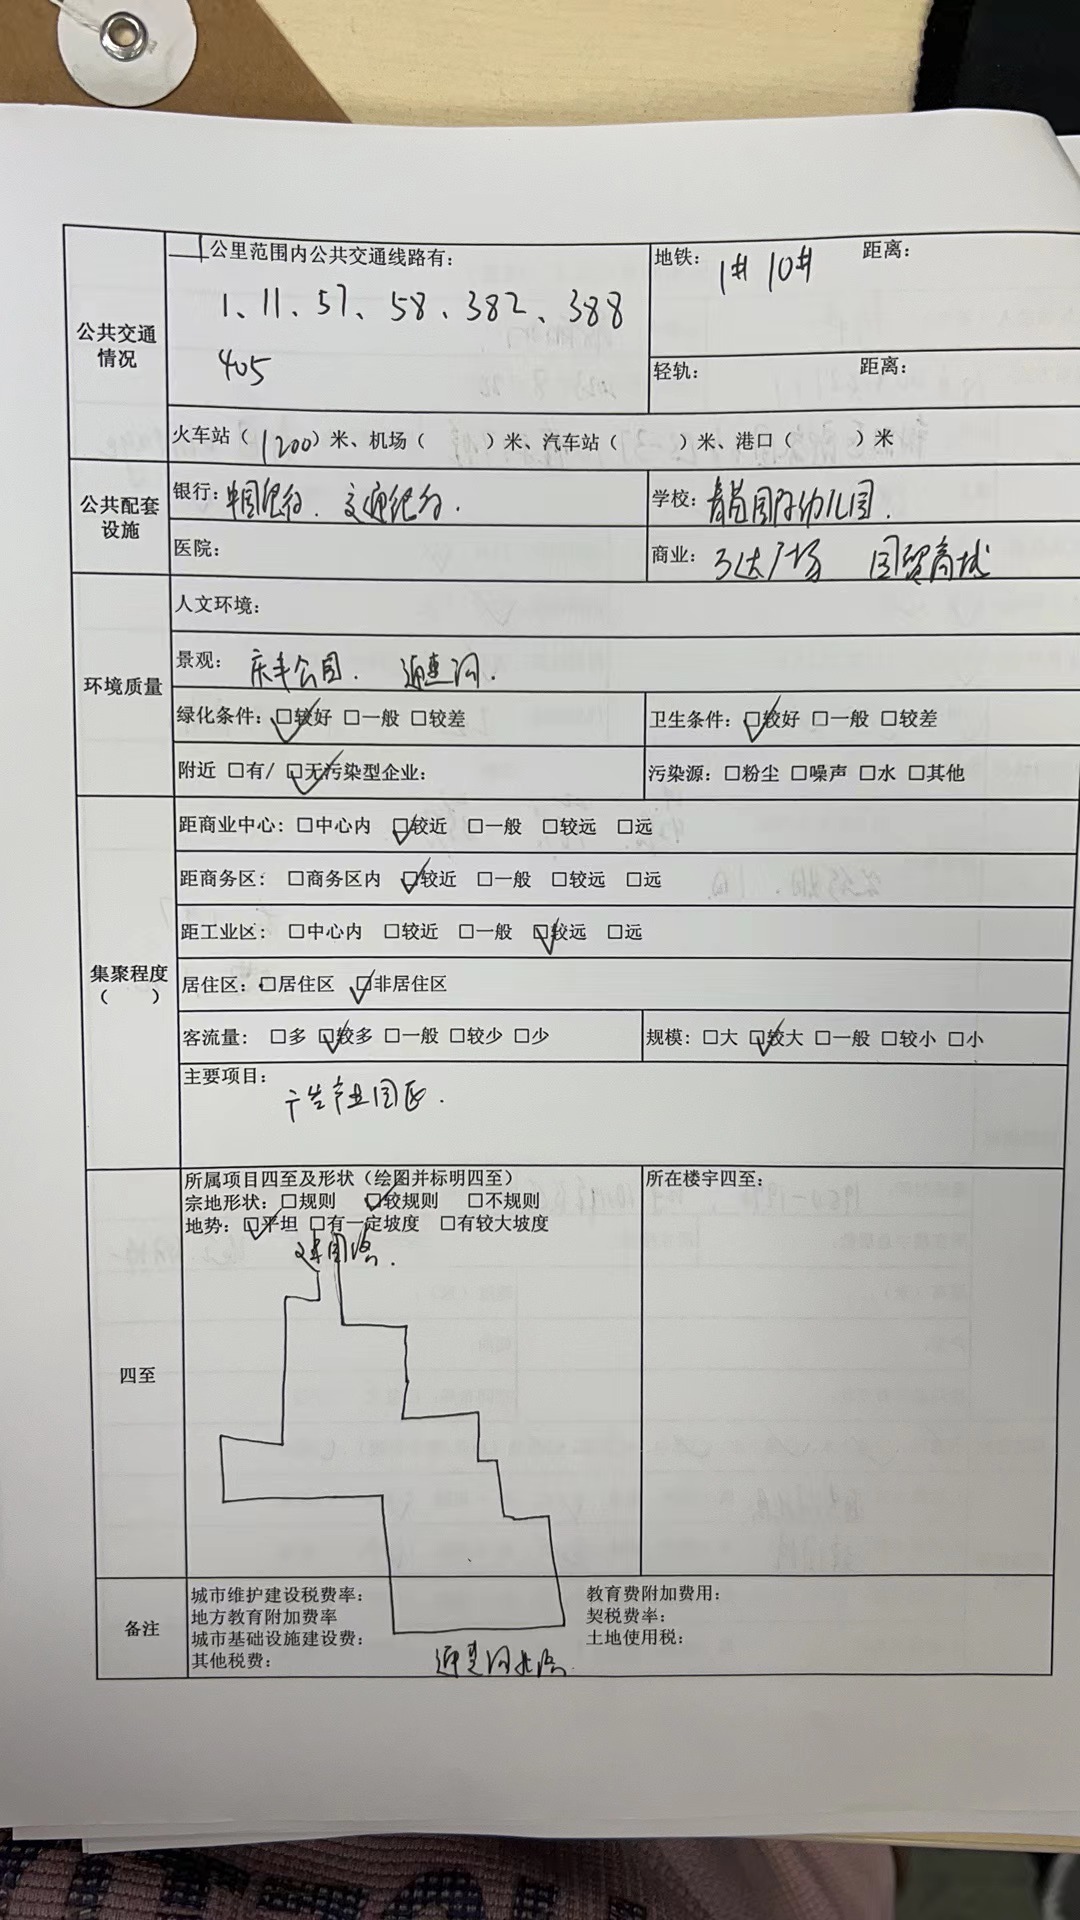 公共交通情况
1公里范围内公共交通线路有：
1、11、57、58、382、388
405
地铁：1# 10# 距离：
轻轨： 距离：
火车站（1200）米、机场（ ）米、汽车站（ ）米、港口（ ）米
公共配套设施
银行：中国银行、交通银行.
学校：青苗国际幼儿园.
医院：
商业：万达广场 国贸商城
环境质量
人文环境：
景观：庆丰公园. 通惠河.
绿化条件：☑较好 □一般 □较差
卫生条件：☑较好 □一般 □较差
附近 □有/ ☑无污染型企业：
污染源：□粉尘 □噪声 □水 □其他
集聚程度（ ）
距商业中心：□中心内 ☑较近 □一般 □较远 □远
距商务区：□商务区内 ☑较近 □一般 □较远 □远
距工业区：□中心内 □较近 □一般 ☑较远 □远
居住区：□居住区 ☑非居住区
客流量：□多 ☑较多 □一般 □较少 □少
规模：□大 ☑较大 □一般 □较小 □小
主要项目：
产业园区.
四至
所属项目四至及形状（绘图并标明四至）
宗地形状：□规则 ☑较规则 □不规则
地势：☑平坦 □有一定坡度 □有较大坡度
所在楼宇四至：
备注
城市维护建设税费率：
地方教育附加费率
城市基础设施建设费：
其他税费：
教育费附加费用：
契税费率：
土地使用税：
通惠河北路